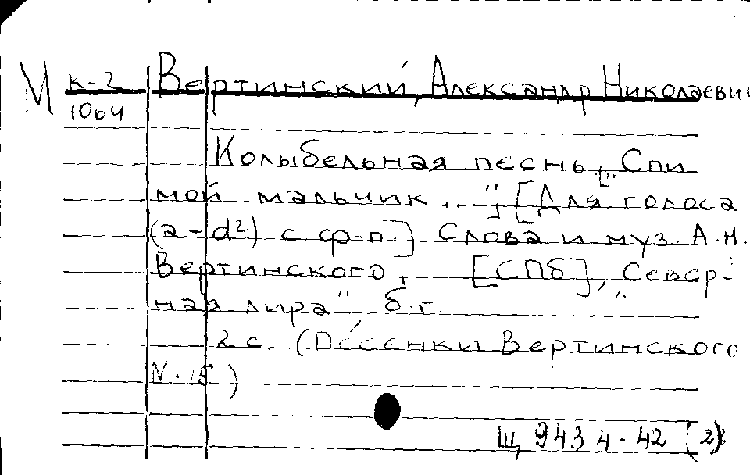 М к-2 Вертинский, Александр Николаеви
1064
Колыбельная песнь ["Спи
мой мальчик..."] [Для голоса
(a-d²) с ф-п.] Слова и муз. А.Н.
Вертинского. [СПб], "Север-
ная лира", б.г.
2 с. (Песенки Вертинского
N. 15)
Щ 9434-42 [2]